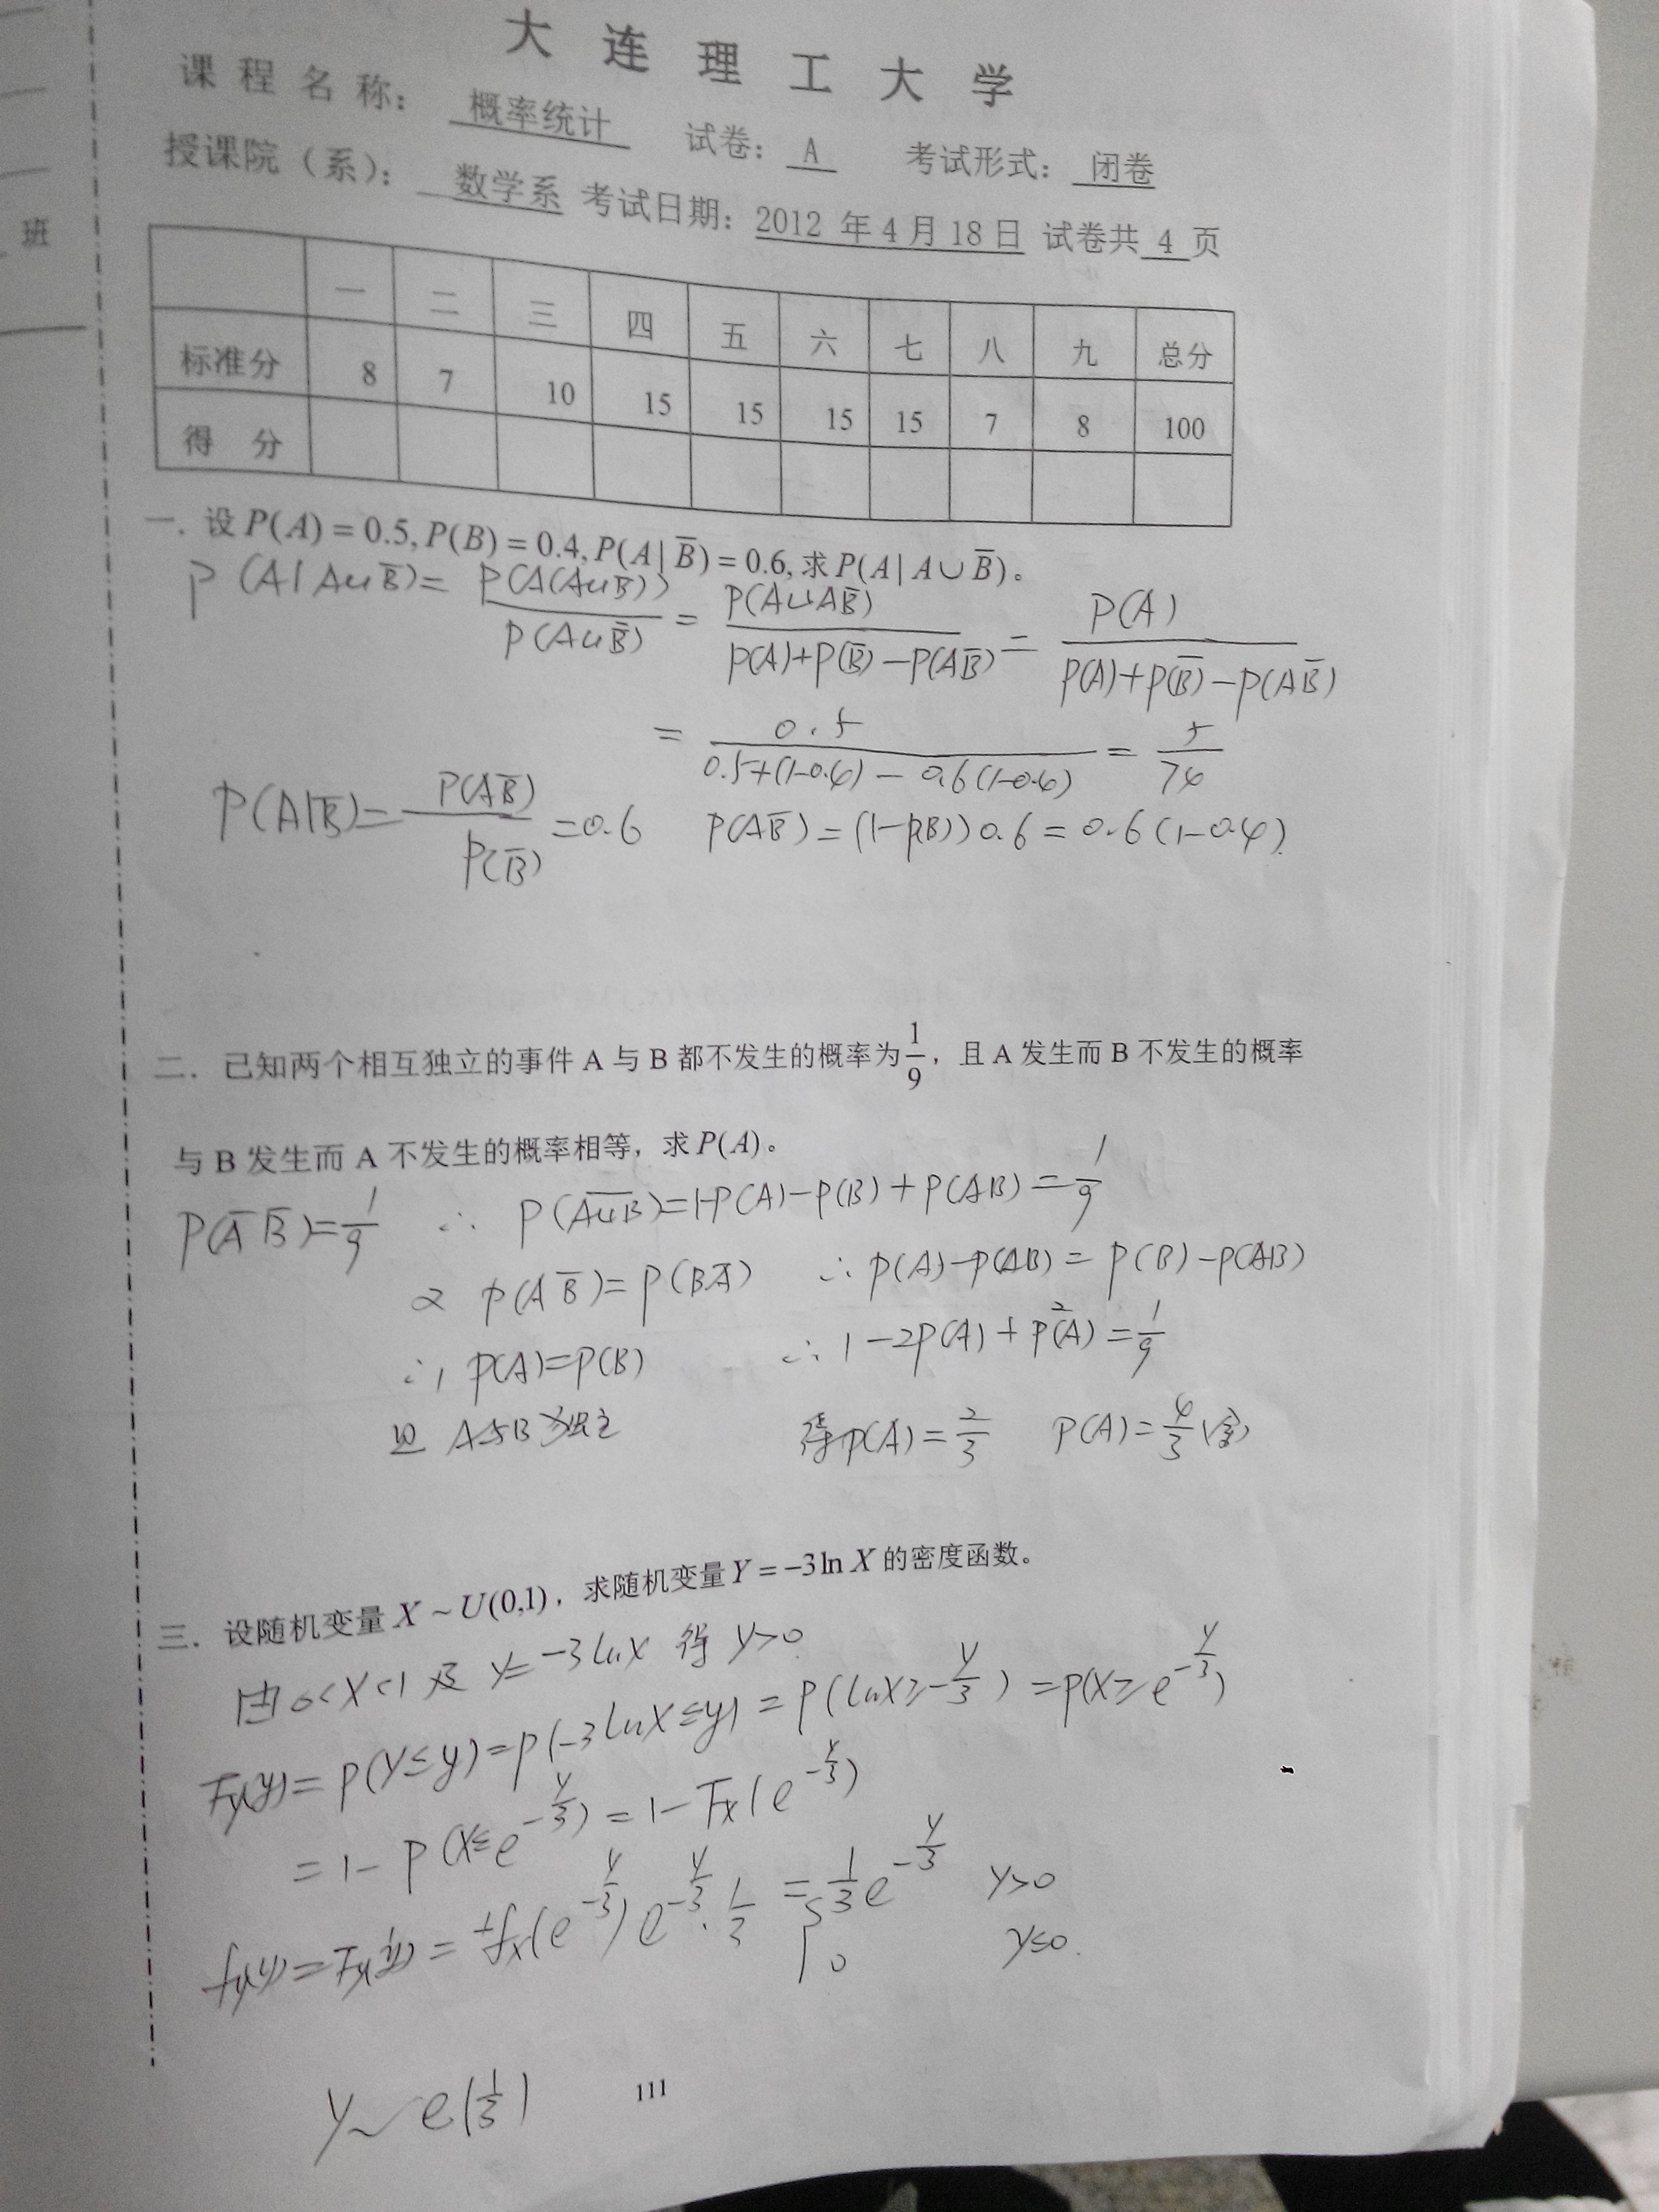 大连理工大学
课程名称： 概率统计 试卷： A 考试形式： 闭卷
授课院（系）： 数学系 考试日期：2012 年 4 月 18 日 试卷共 4 页
班
一 二 三 四 五 六 七 八 九 总分
标准分 8 7 10 15 15 15 15 7 8 100
得 分
一. 设 P(A) = 0.5, P(B) = 0.4, P(A| B̅) = 0.6, 求 P(A| A∪B̅)。
P(A|A∪B̅) = P(A(A∪B̅))/P(A∪B̅) = P(A∪AB̅)/(P(A)+P(B̅)−P(AB̅)) = P(A)/(P(A)+P(B̅)−P(AB̅))
= 0.5/(0.5+(1-0.4)−0.6(1-0.4)) = 5/74
P(A|B̅) = P(AB̅)/P(B̅) = 0.6 P(AB̅) = (1−P(B))0.6 = 0.6(1−0.4)
二. 已知两个相互独立的事件 A 与 B 都不发生的概率为 1/9，且 A 发生而 B 不发生的概率
与 B 发生而 A 不发生的概率相等，求 P(A)。
P(A̅ B̅) = 1/9 ∴ P(A̅∪̅B̅) = 1-P(A)−P(B)+P(AB) = 1/9
又 P(AB̅) = P(BA̅) ∴ P(A)−P(AB) = P(B)−P(AB)
∴ P(A)=P(B) ∴ 1−2P(A)+P²(A) = 1/9
且 A与B独立 得P(A) = 2/3 P(A) = 4/3 (舍)
三. 设随机变量 X ~ U(0,1)，求随机变量 Y = −3ln X 的密度函数。
由 0<X<1 及 Y=−3lnX 得 Y>0
F_Y(y) = P(Y≤y) = P(−3lnX≤y) = P(lnX≥−y/3) = P(X≥e^{−y/3})
= 1−P(X≤e^{−y/3}) = 1−F_X(e^{−y/3})
f_Y(y) = F_Y'(y) = +f_X(e^{−y/3})e^{−y/3}·1/3 = { 1/3 e^{−y/3} y>0
0 y≤0.
Y~e(1/3)
111